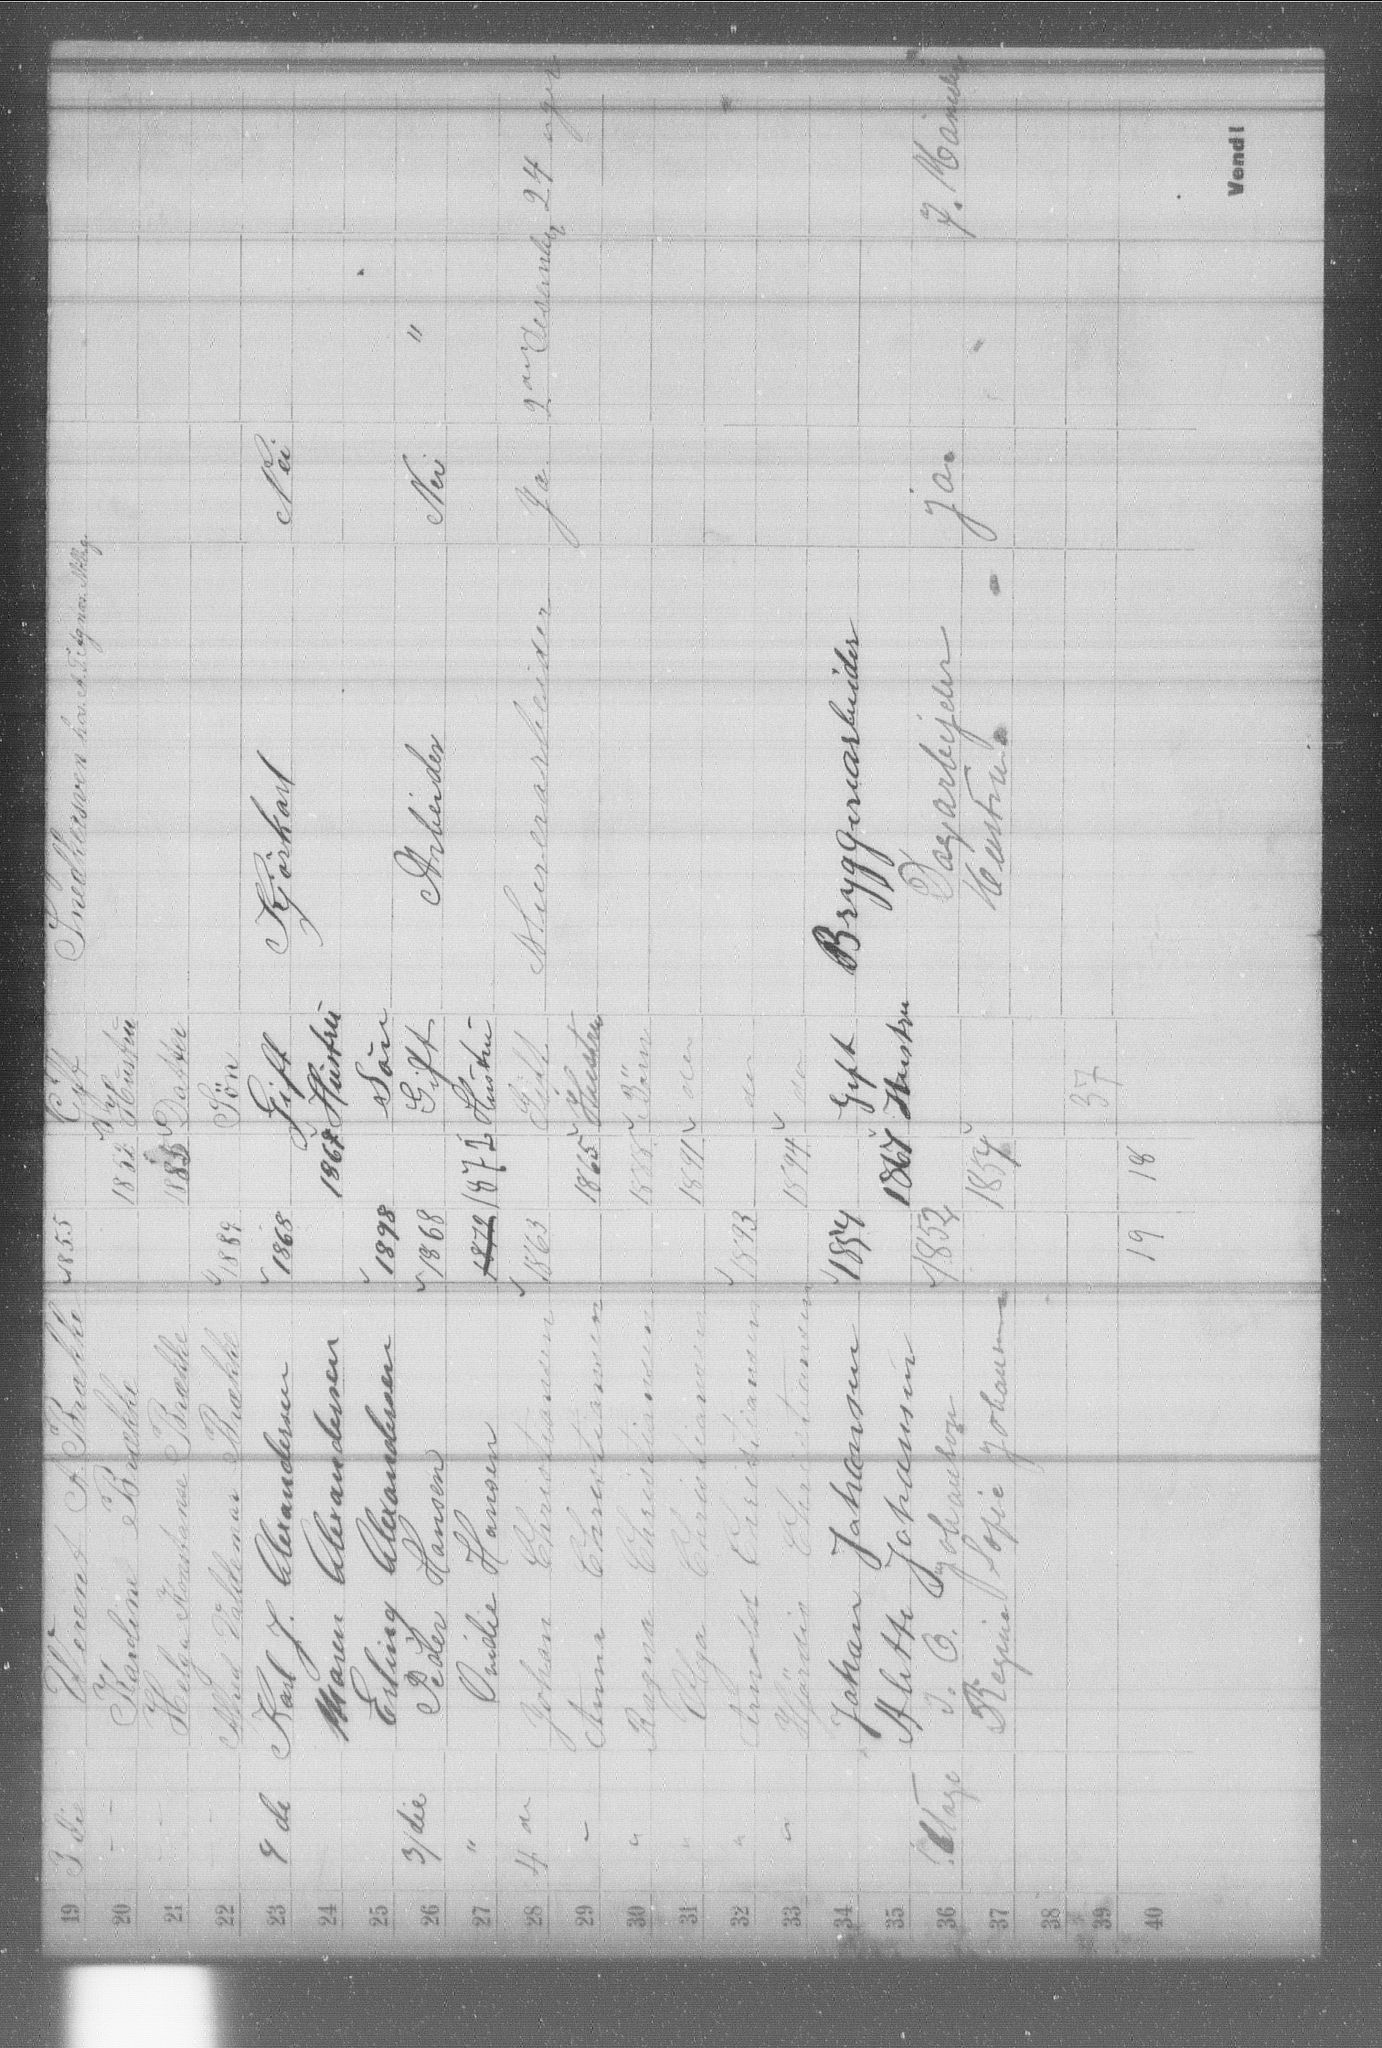 19 3die Virent A Brække 1855 Gift Snedkersven hos
20 " Kardine Brække 1852 Hustru
21 " Helga Konstanse Brække 1885 Datter
22 " Knud Valdemar Brække 1889 Søn
23 4de Karl J. Alexandersen 1868 Gift Kjørkarl Nei
24 Maren Alexandersen 1867 Hustru
25 Erling Alexandersen 1898 Søn
26 3/die Peder Hansen 1868 Gift Arbeider Nei "
27 " Ovidie Hansen 1872 1871 Hustru
28 4 de Johan Christiansen 1863 Gift Murerarbeider Ja 2an Desember 24 uger
29 " Anna Christiansen 1865 Hustru
30 " Ragna Christiansen 1888 Barn
31 " Olga Christiansen 1891 do
32 " Arnold Christiansen 1893 do
33 " Hjørdis Christiansen 1894 do
34 Johan Johansen 1854 Gift Bryggeriarbeider
35 Alette Johansen 1867 Hustru
36 Etage J. O. Johansen 1852 Dagarbejder ja 7. Maaneder
37 Regine Sofie Johansen 1854 Hustru
38
39 37
40 19 18
Vend!